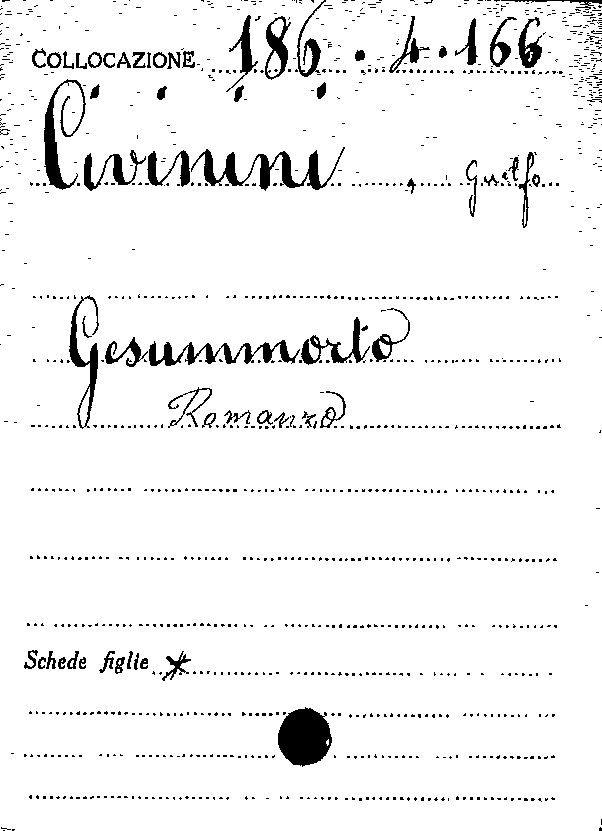 COLLOCAZIONE 186.4.166
Civinini, Guelfo
Gesummorto
Romanzo
Schede figlie *